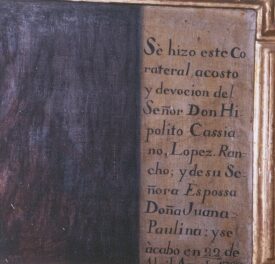 Sè hizo este Co
rateral, acosto
y devocion del
Señor Don Hi-
polito Cassia
no, Lopez. Ran-
cho; y de su Se-
ñora Espossa
Doña Juana
Paulina: y se
àcabo en 22 de